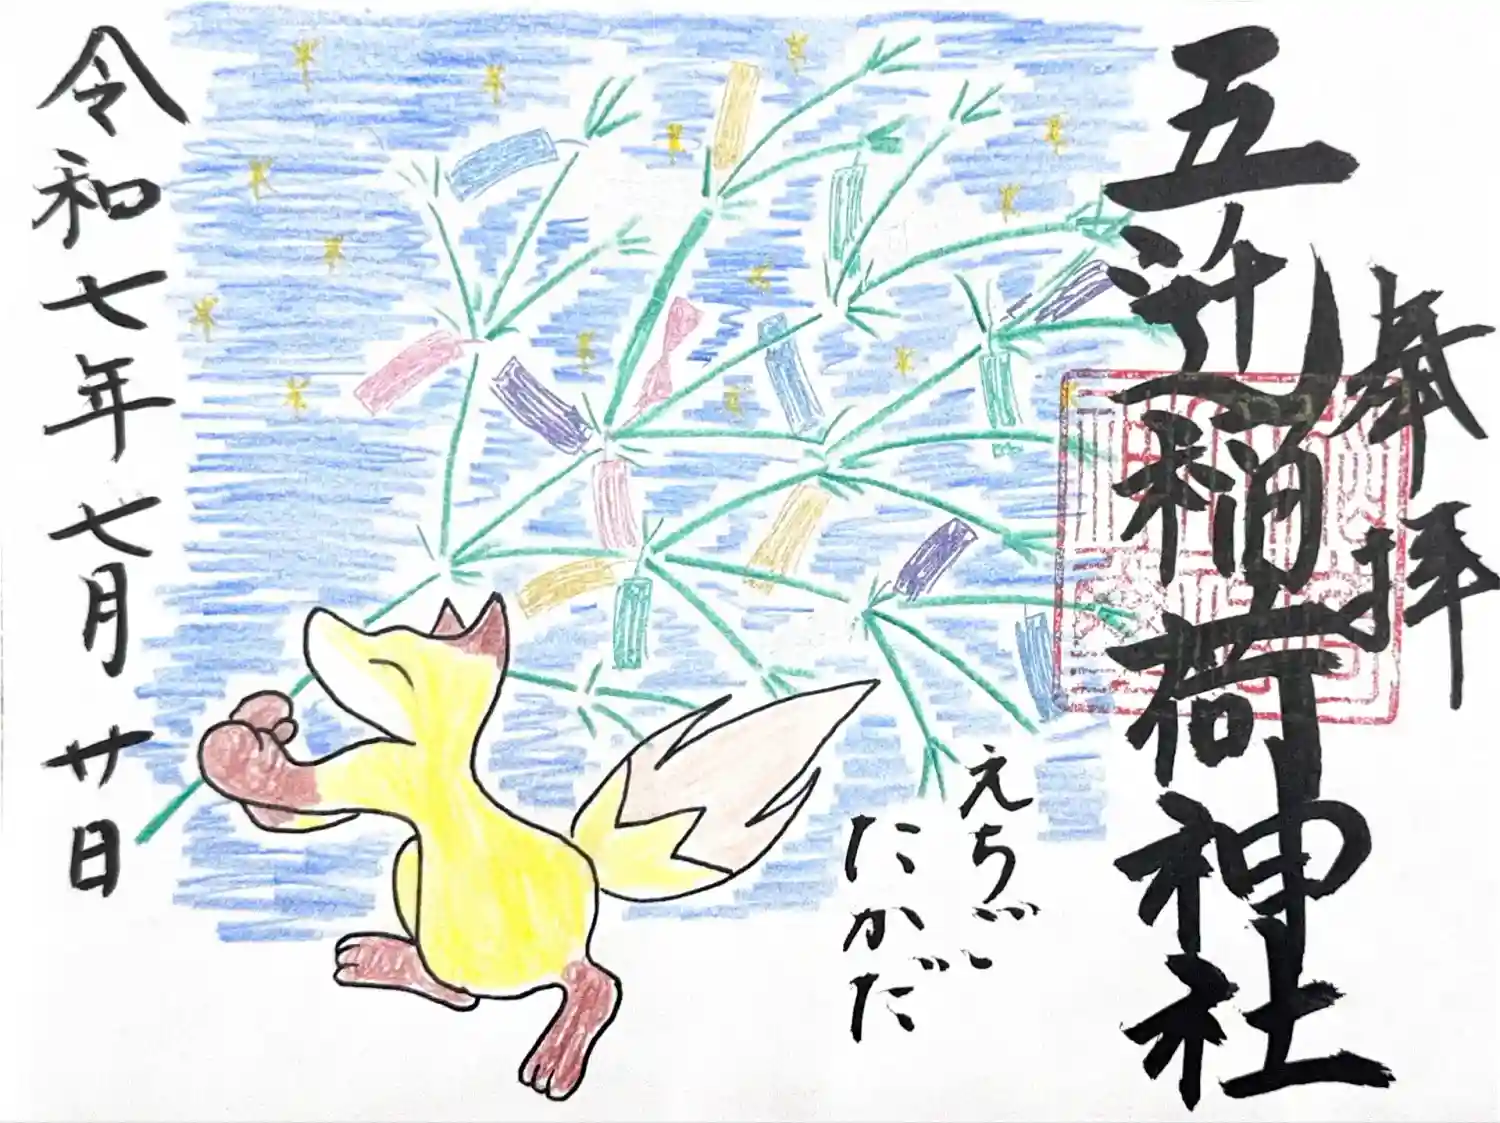 奉拝
五許稲荷神社
えちご
たかだ
令和七年七月廿日